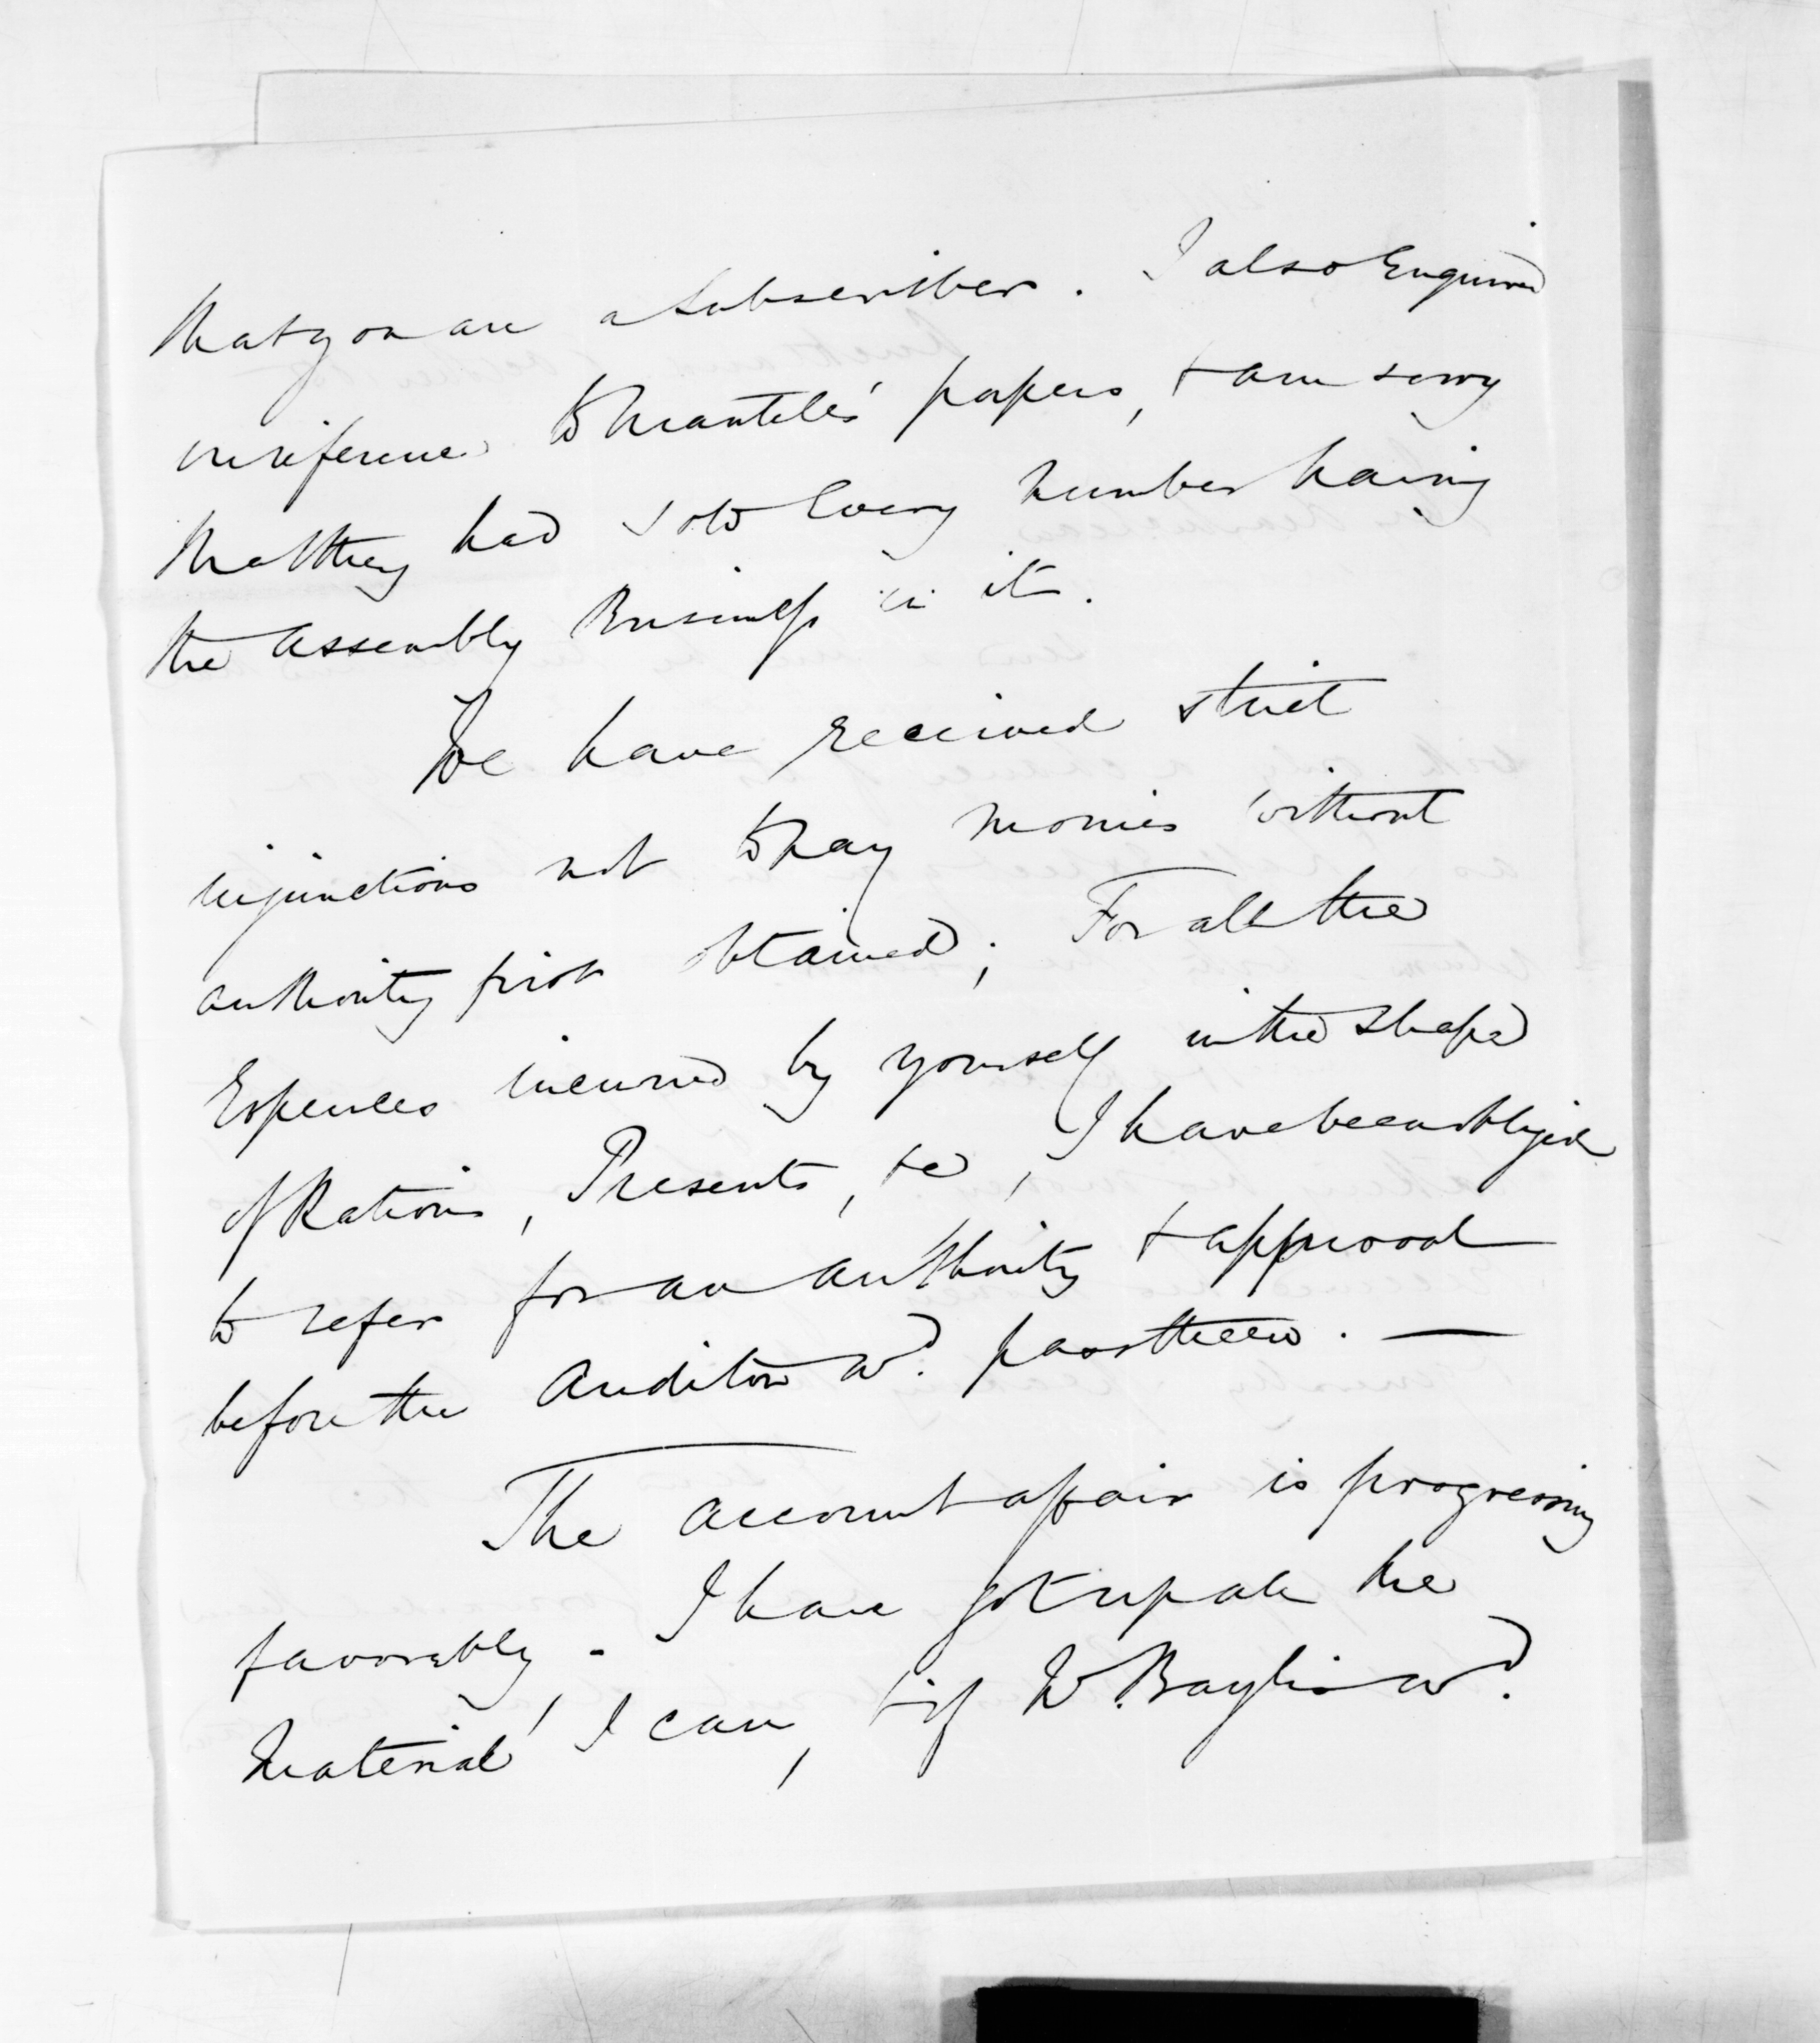 that you are a Subscriber. I also Enquired
in reference to Mantels' papers, & am sorry
that they had sold Every number having
the Assembly Business in it.
We have received strict
injunctions not to pay monies without
authority first obtained; For all the
Expences incurred by yourself in the shape
of Rations, Presents, &c, I have been obliged
to refer for an authority & approval
before the Auditor wd. pass them. —
The account affair is progressing
favorably. I have got up all the
Material I can, & if W. Baylis wd.